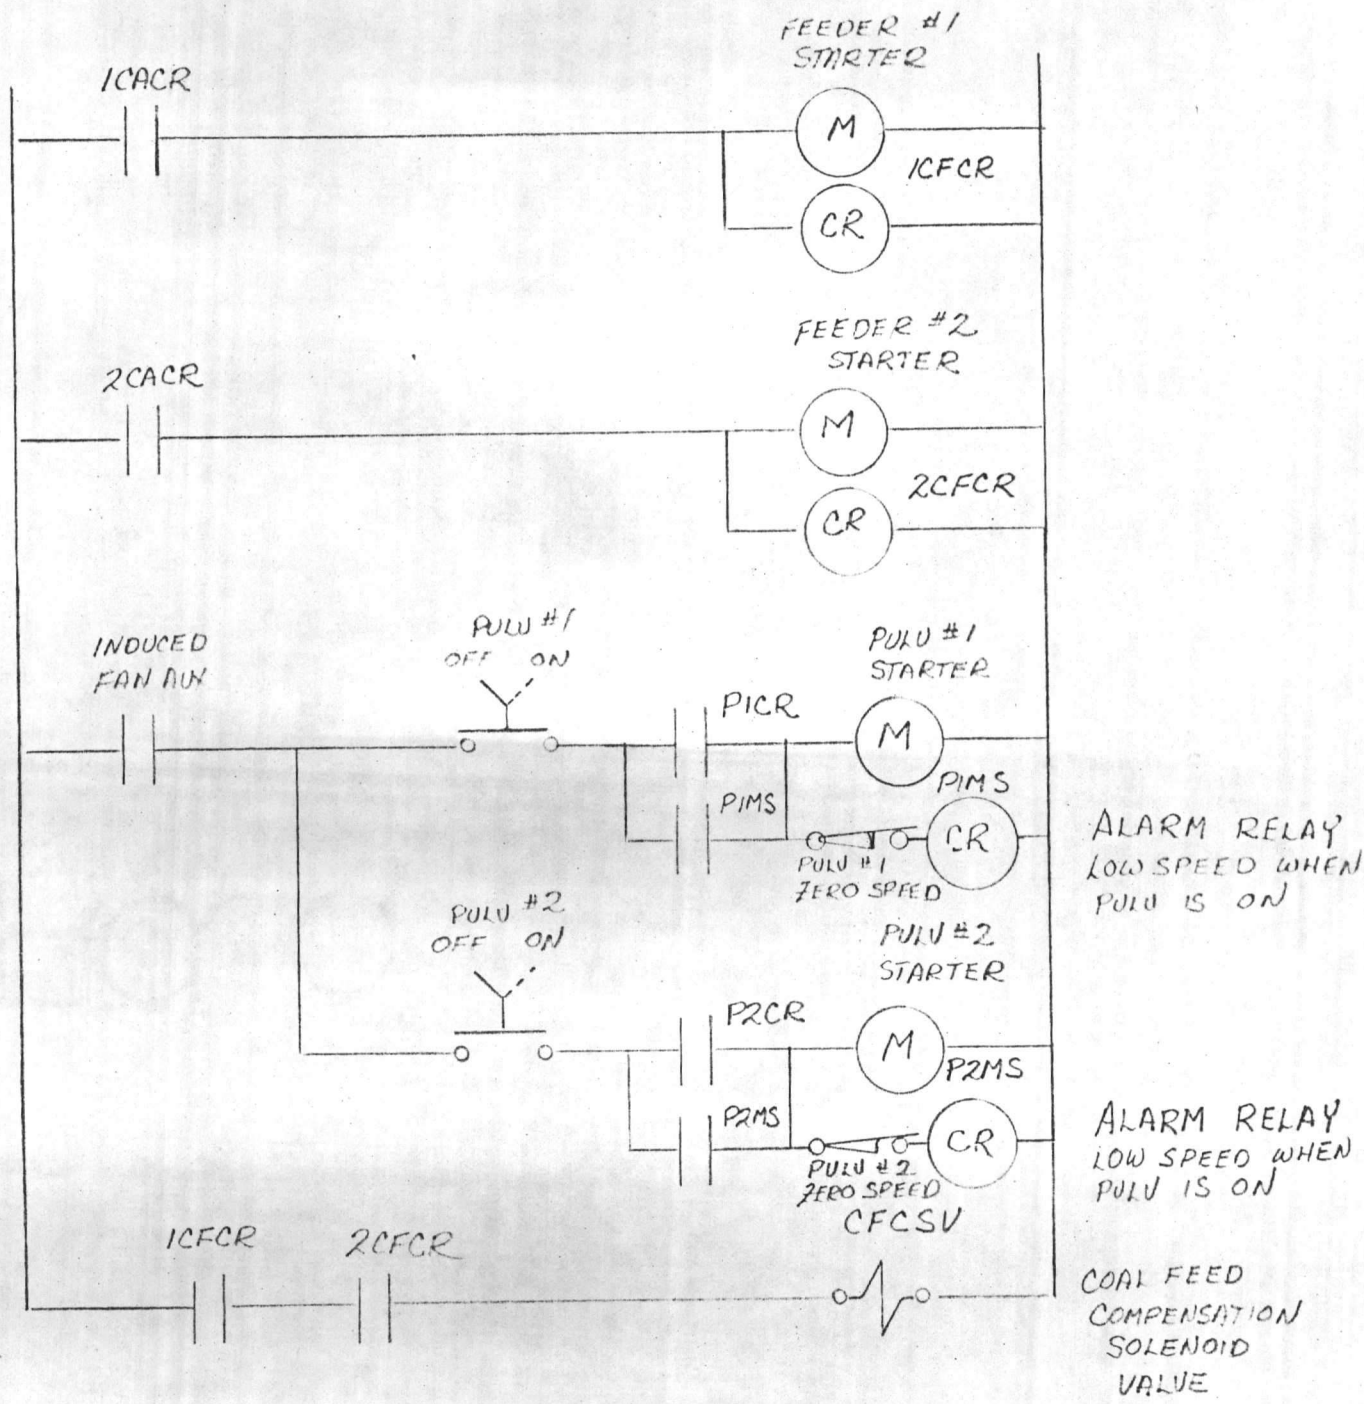 FEEDER #1
STARTER
1CACR
M
1CFCR
CR
FEEDER #2
STARTER
2CACR
M
2CFCR
CR
INDUCED
FAN AUX
PULV #1
OFF ON
PULV #1
STARTER
P1CR
M
P1MS
P1MS
CR
PULV #1
ZERO SPEED
ALARM RELAY
LOW SPEED WHEN
PULV IS ON
PULV #2
OFF ON
PULV #2
STARTER
P2CR
M
P2MS
P2MS
CR
PULV #2
ZERO SPEED
ALARM RELAY
LOW SPEED WHEN
PULV IS ON
1CFCR
2CFCR
CFCSV
COAL FEED
COMPENSATION
SOLENOID
VALVE